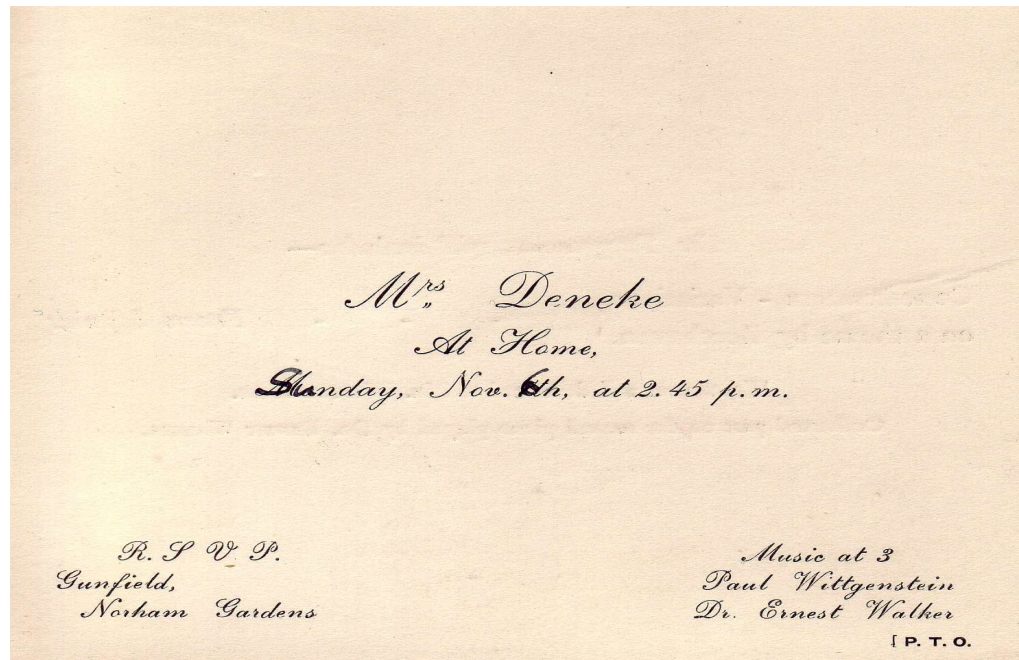 Mrs Deneke
At Home,
Sunday, Nov. 6th, at 2.45 p.m.
R. S V. P.
Gunfield,
Norham Gardens
Music at 3
Paul Wittgenstein
Dr. Ernest Walker
[ P. T. O.